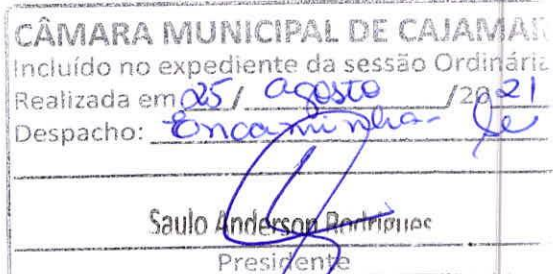 CÂMARA MUNICIPAL DE CAJAMAR
Incluído no expediente da sessão Ordinária
Realizada em 25 / agosto /20 21
Despacho: Encaminha-se
Saulo Anderson Rodrigues
Presidente